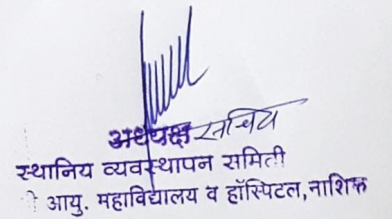 अध्यक्ष सचिव
स्थानिय व्यवस्थापन समिती
आयु. महाविद्यालय व हॉस्पिटल, नाशिक